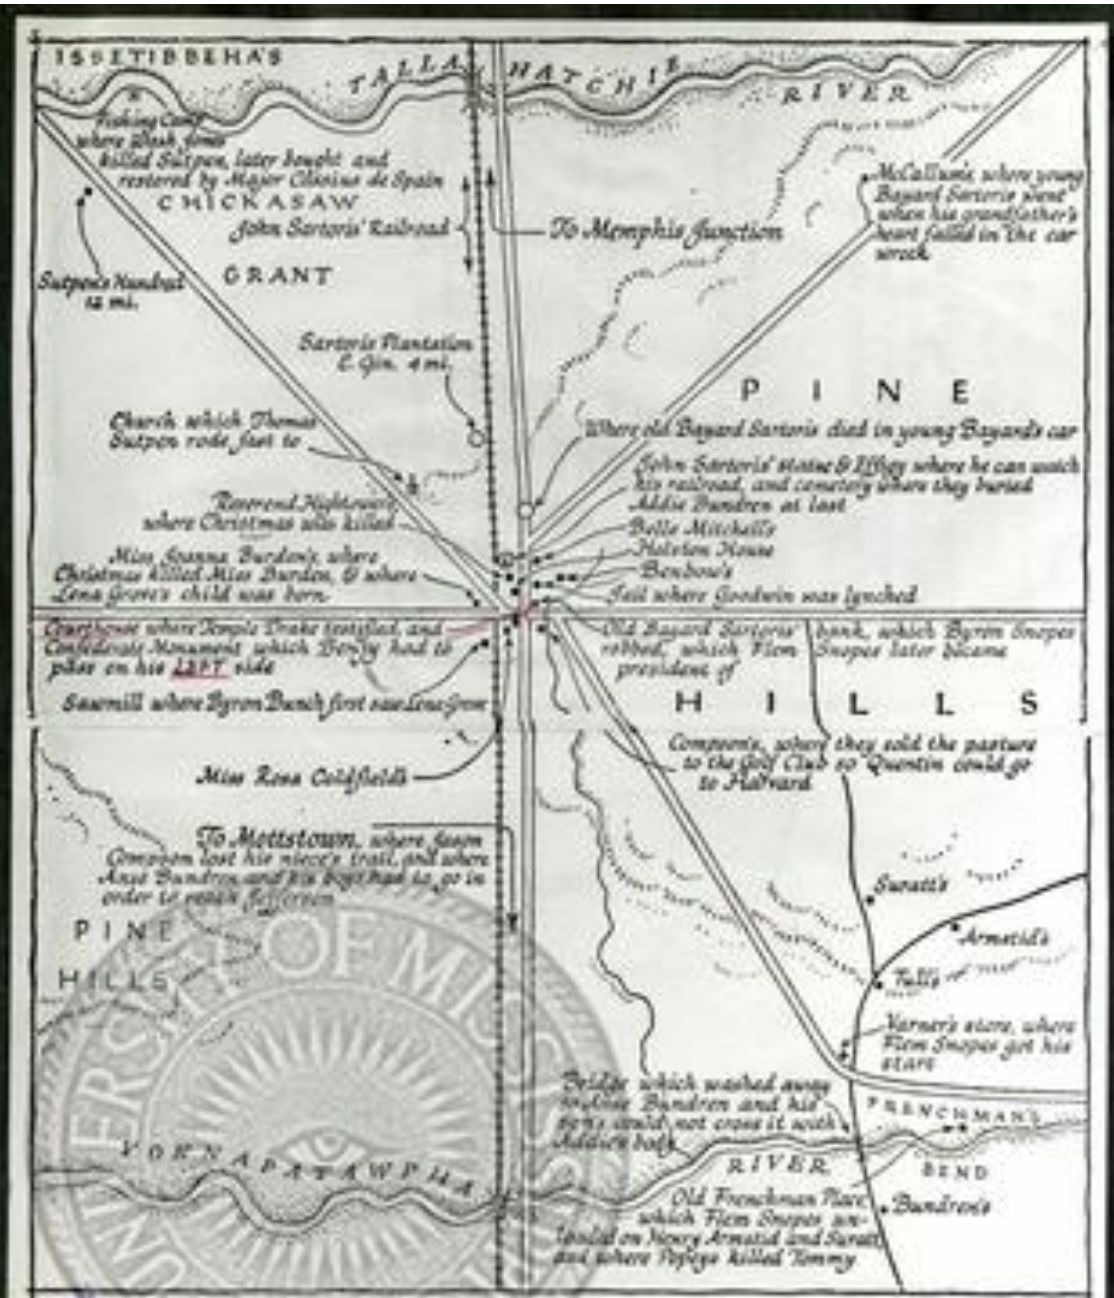 ISSETIBBEHA'S
TALLAHATCHIE
RIVER
Fishing Camp
where Wash Jones
killed Sutpen, later bought and
restored by Major Cassius de Spain
CHICKASAW
John Sartoris' Railroad
To Memphis Junction
McCallum's, where young
Bayard Sartoris went
when his grandfather's
heart failed in the car
wreck
Sutpen's Hundred
12 mi.
GRANT
Sartoris Plantation
& Gin. 4 mi.
PINE
Church which Thomas
Sutpen rode fast to
Where old Bayard Sartoris died in young Bayard's car
John Sartoris' statue & Effigy where he can watch
his railroad, and cemetery where they buried
Addie Bundren at last
Reverend Hightower's,
where Christmas was killed
Belle Mitchell's
Holston House
Benbow's
Miss Joanna Burden's, where
Christmas killed Miss Burden, & where
Lena Grove's child was born
Jail where Goodwin was lynched
Courthouse where Temple Drake testified, and
Confederate Monument which Benjy had to
pass on his LEFT side
Old Bayard Sartoris' bank, which Byron Snopes
robbed, which Flem Snopes later became
president of
Sawmill where Byron Bunch first saw Lena Grove
HILLS
Compson's, where they sold the pasture
to the Golf Club so Quentin could go
to Harvard
Miss Rosa Coldfield's
To Mottstown, where Jason
Compson lost his niece's trail, and where
Anse Bundren and his boys had to go in
order to reach Jefferson
Suratt's
Armstid's
Tull's
PINE
HILLS
Varner's store, where
Flem Snopes got his
start
Bridge which washed away
so Anse Bundren and his
sons could not cross it with
Addie's body
FRENCHMAN'S
BEND
YOKNAPATAWPHA
RIVER
Old Frenchman Place,
which Flem Snopes un-
loaded on Henry Armstid and Suratt,
and where Popeye killed Tommy
Bundren's
OF